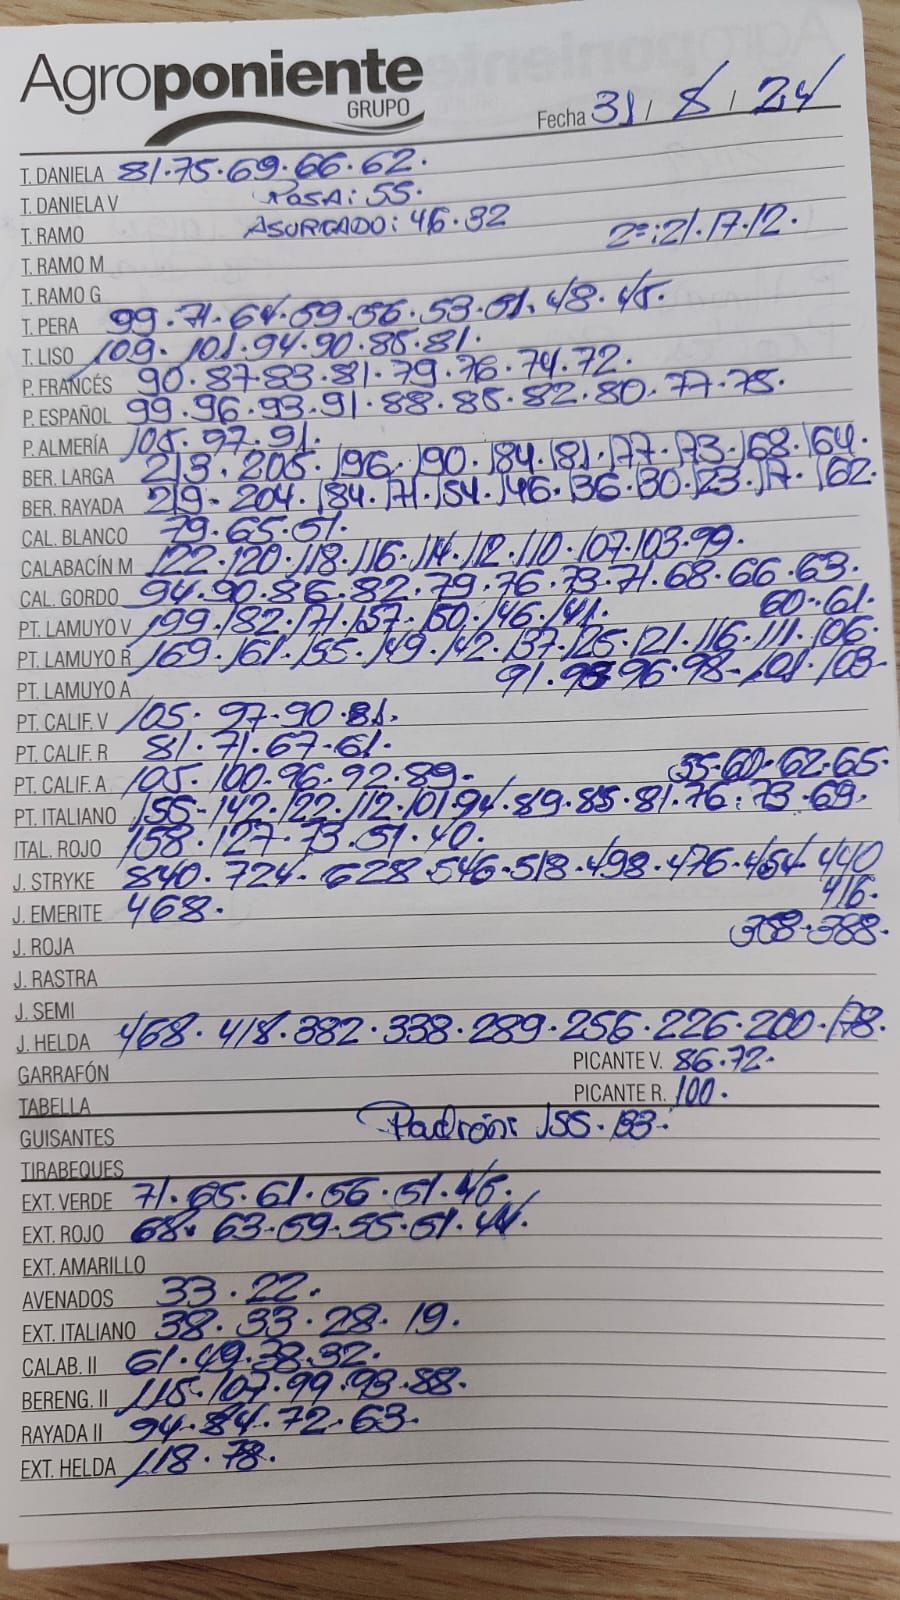 Agroponiente
GRUPO
Fecha 31 / 8 / 24
T. DANIELA 81.75.69.66.62.
T. DANELA V ROSA: 55.
T. RAMO ASURCADO: 46.32 2ª:21.17.12.
T. RAMO M
T. RAMO G
T. PERA 99.71.64.59.56.53.51.48.45.
T. LISO 109.101.94.90.85.81.
P. FRANCÉS 90.87.83.81.79.76.74.72.
P. ESPAÑOL 99.96.93.91.88.85.82.80.77.75.
P. ALMERÍA 105.97.91.
BER. LARGA 213.205.196.190.184.181.177.173.168.164.
BER. RAYADA 219-204.184.171.154.146.136.130.123.117.162.
CAL. BLANCO 79.65.51.
CALABACÍN M 122.120.118.116.114.112.110.107.103.99.
CAL. GORDO 94.90.86.82.79.76.73.71.68.66.63.
60.61.
PT. LAMUYO V 199.182.171.157.150.146.141.
PT. LAMUYO R 169.161.155.149.142.137.125.121.116.111.106.
PT. LAMUYO A 91. 96.98-101.103-
PT. CALIF. V 105.97.90.81.
PT. CALIF. R 81.71.67-61.
PT. CALIF. A 105.100.96.92.89- 55-60.62.65.
PT. ITALIANO 155-142.122.112.101.94.89.85.81.76.73.69.
ITAL. ROJO 158.127.73.51.40.
J. STRYKE 840.724.628.546.518.498.476.454.440
416.
J. EMERITE 468.
388.
J. ROJA
J. RASTRA
J. SEMI
J. HELDA 468.418.382.338.289.256.226.200.178.
GARRAFÓN PICANTE V. 86.72.
TABELLA PICANTE R. 100.
GUISANTES Padrón: 155.133.
TIRABEQUES
EXT. VERDE 71.65.61.56.51.45.
EXT. ROJO 68.63-59.55.51.44.
EXT. AMARILLO
AVENADOS 33.22.
EXT. ITALIANO 38.33.28.19.
CALAB. II 61.49.38.32.
BERENG. II 115-107.99.93.88.
RAYADA II 94.84.72.63.
EXT. HELDA 118.78.